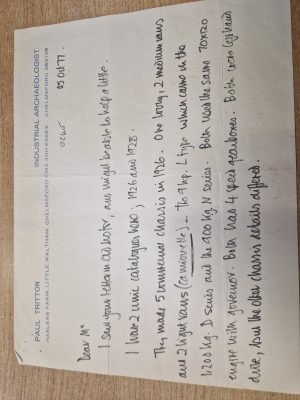 PAUL TRITTON
INDUSTRIAL ARCHAEOLOGIST
HASLERS FARM LITTLE WALTHAM, CHELMSFORD CM3 3NH ESSEX CHELMSFORD 360138
05 Oct 77.
Dear Mr
I saw your letter in Old Motor, and might be able to help a little.
I have 2 Unic catalogues here, 1926 and 1928.
They made 5 commercial chassis in 1926. One lorry, 2 medium vans
and 2 light vans (camionette) - the 9 hp. L type which came in the
1200 kg. D series and the 900 kg N series. Both used the same 70x120
engine with governor. Both has 4 speed gearboxes. Both were left hand
drive, but the other chassis details differed.